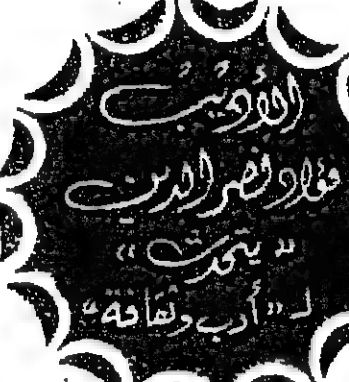 الأديب
فؤاد نصر الدين
« يتحدث »
لـ « أدب وثقافة »